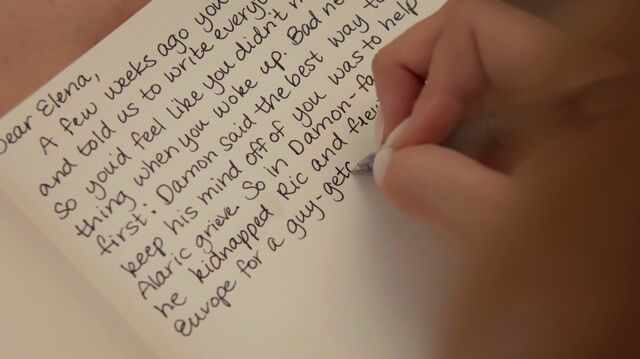 Dear Elena,
A few weeks ago you
and told us to write everyo
so you'd feel like you didn't m
thing when you woke up. Bad ne
first: Damon said the best way to
keep his mind off of you was to help
Alaric grieve So in Damon-fa
he kidnapped Ric and flew
Europe for a guy-geta